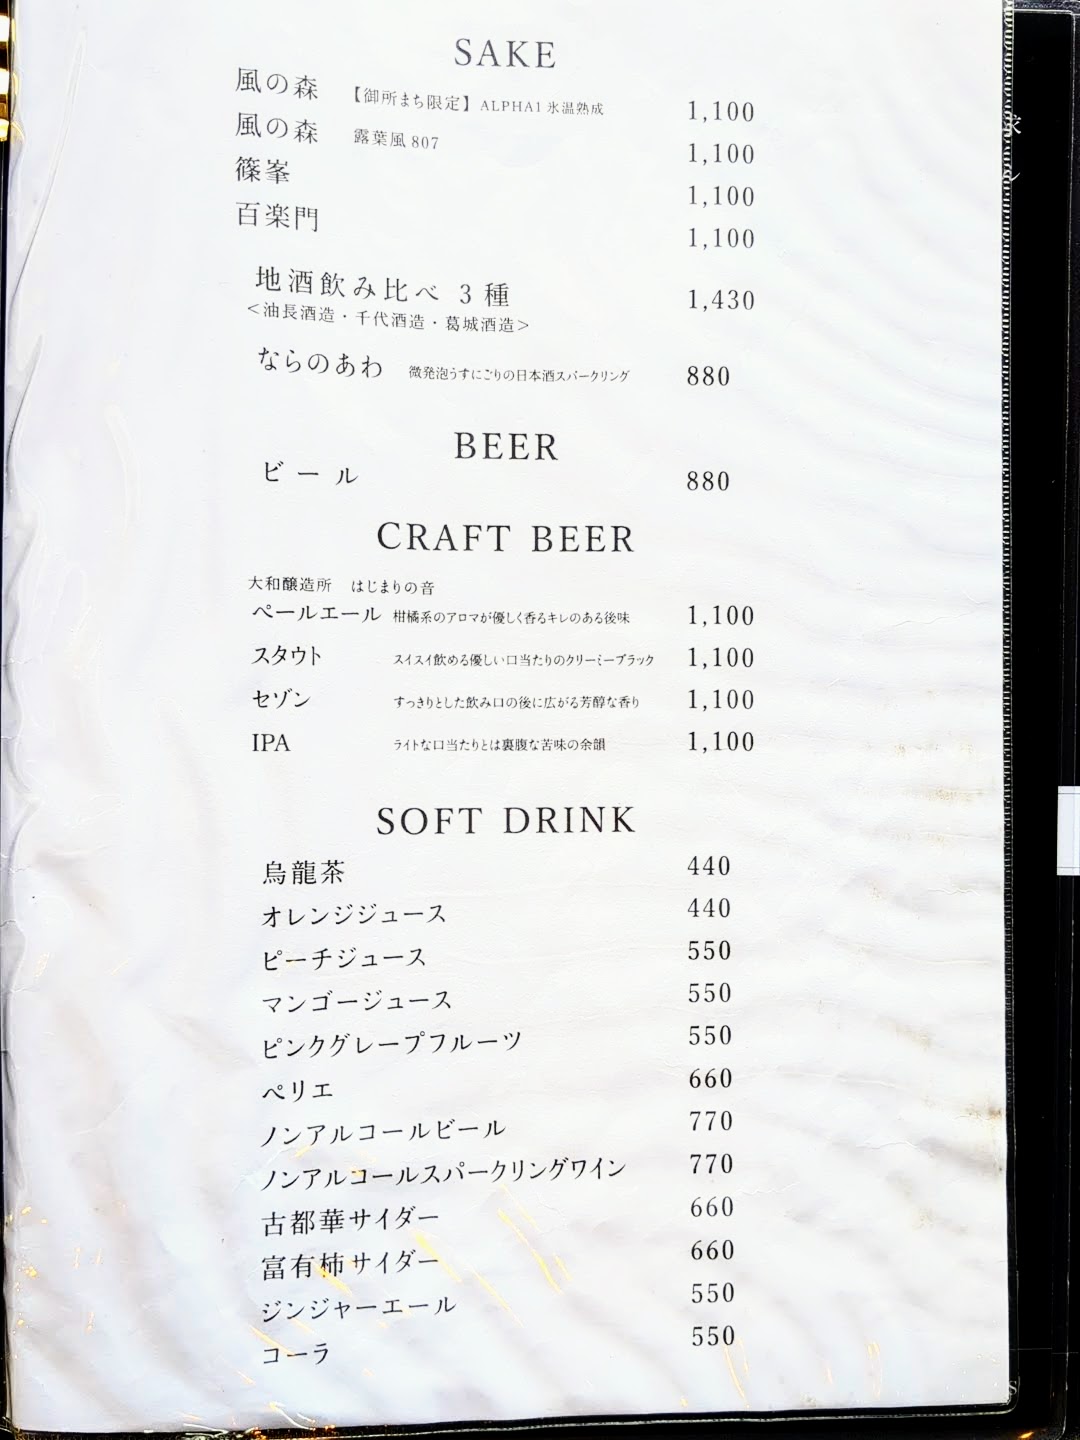 SAKE
風の森 【御所まち限定】ALPHA1 氷温熟成 1,100
風の森 露葉風 807 1,100
篠峯 1,100
百楽門 1,100
地酒飲み比べ 3種 1,430
<油長酒造・千代酒造・葛城酒造>
ならのあわ 微発泡うすにごりの日本酒スパークリング 880
BEER
ビール 880
CRAFT BEER
大和醸造所 はじまりの音
ペールエール 柑橘系のアロマが優しく香るキレのある後味 1,100
スタウト スイスイ飲める優しい口当たりのクリーミーブラック 1,100
セゾン すっきりとした飲み口の後に広がる芳醇な香り 1,100
IPA ライトな口当たりとは裏腹な苦味の余韻 1,100
SOFT DRINK
烏龍茶 440
オレンジジュース 440
ピーチジュース 550
マンゴージュース 550
ピンクグレープフルーツ 550
ペリエ 660
ノンアルコールビール 770
ノンアルコールスパークリングワイン 770
古都華サイダー 660
富有柿サイダー 660
ジンジャーエール 550
コーラ 550